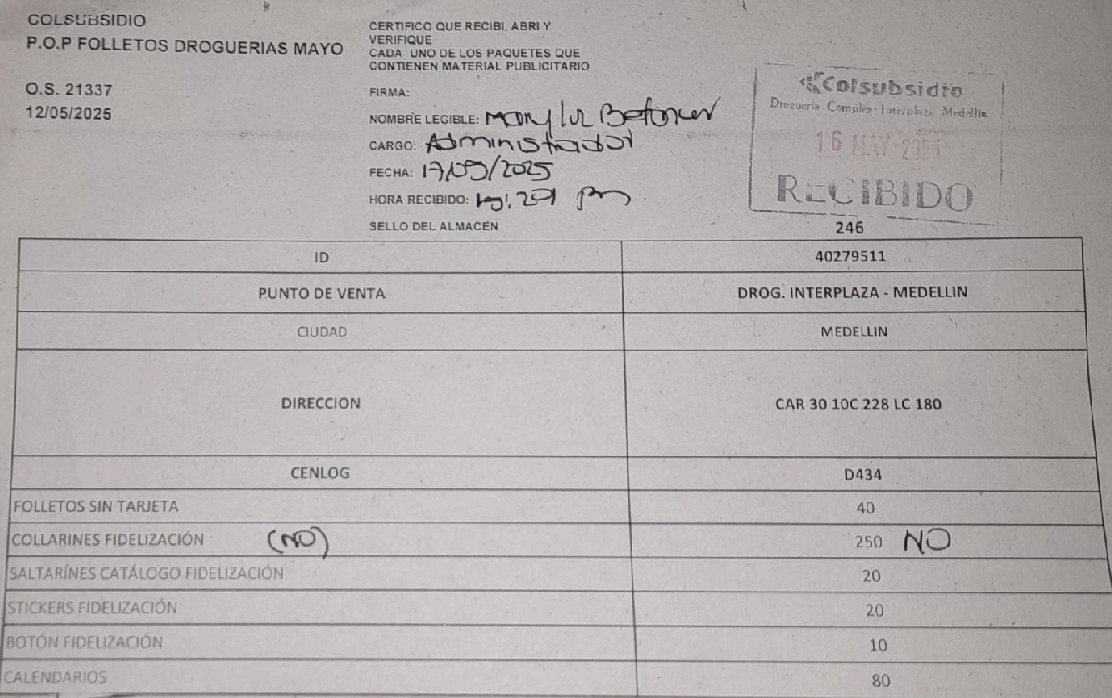 COLSUBSIDIO
P.O.P FOLLETOS DROGUERIAS MAYO
O.S. 21337
12/05/2025
CERTIFICO QUE RECIBI, ABRI Y
VERIFIQUE
CADA UNO DE LOS PAQUETES QUE
CONTIENEN MATERIAL PUBLICITARIO
FIRMA:
NOMBRE LEGIBLE:
CARGO: Administrador
FECHA: 17/05/2025
HORA RECIBIDO: pm
SELLO DEL ALMACEN
Colsubsidio
Medellin
16 MAY 2025
RECIBIDO
246
ID 40279511
PUNTO DE VENTA DROG. INTERPLAZA - MEDELLIN
CIUDAD MEDELLIN
DIRECCION CAR 30 10C 228 LC 180
CENLOG D434
FOLLETOS SIN TARJETA 40
COLLARINES FIDELIZACIÓN (NO) 250 NO
SALTARÍNES CATÁLOGO FIDELIZACIÓN 20
STICKERS FIDELIZACIÓN 20
BOTÓN FIDELIZACIÓN 10
CALENDARIOS 80